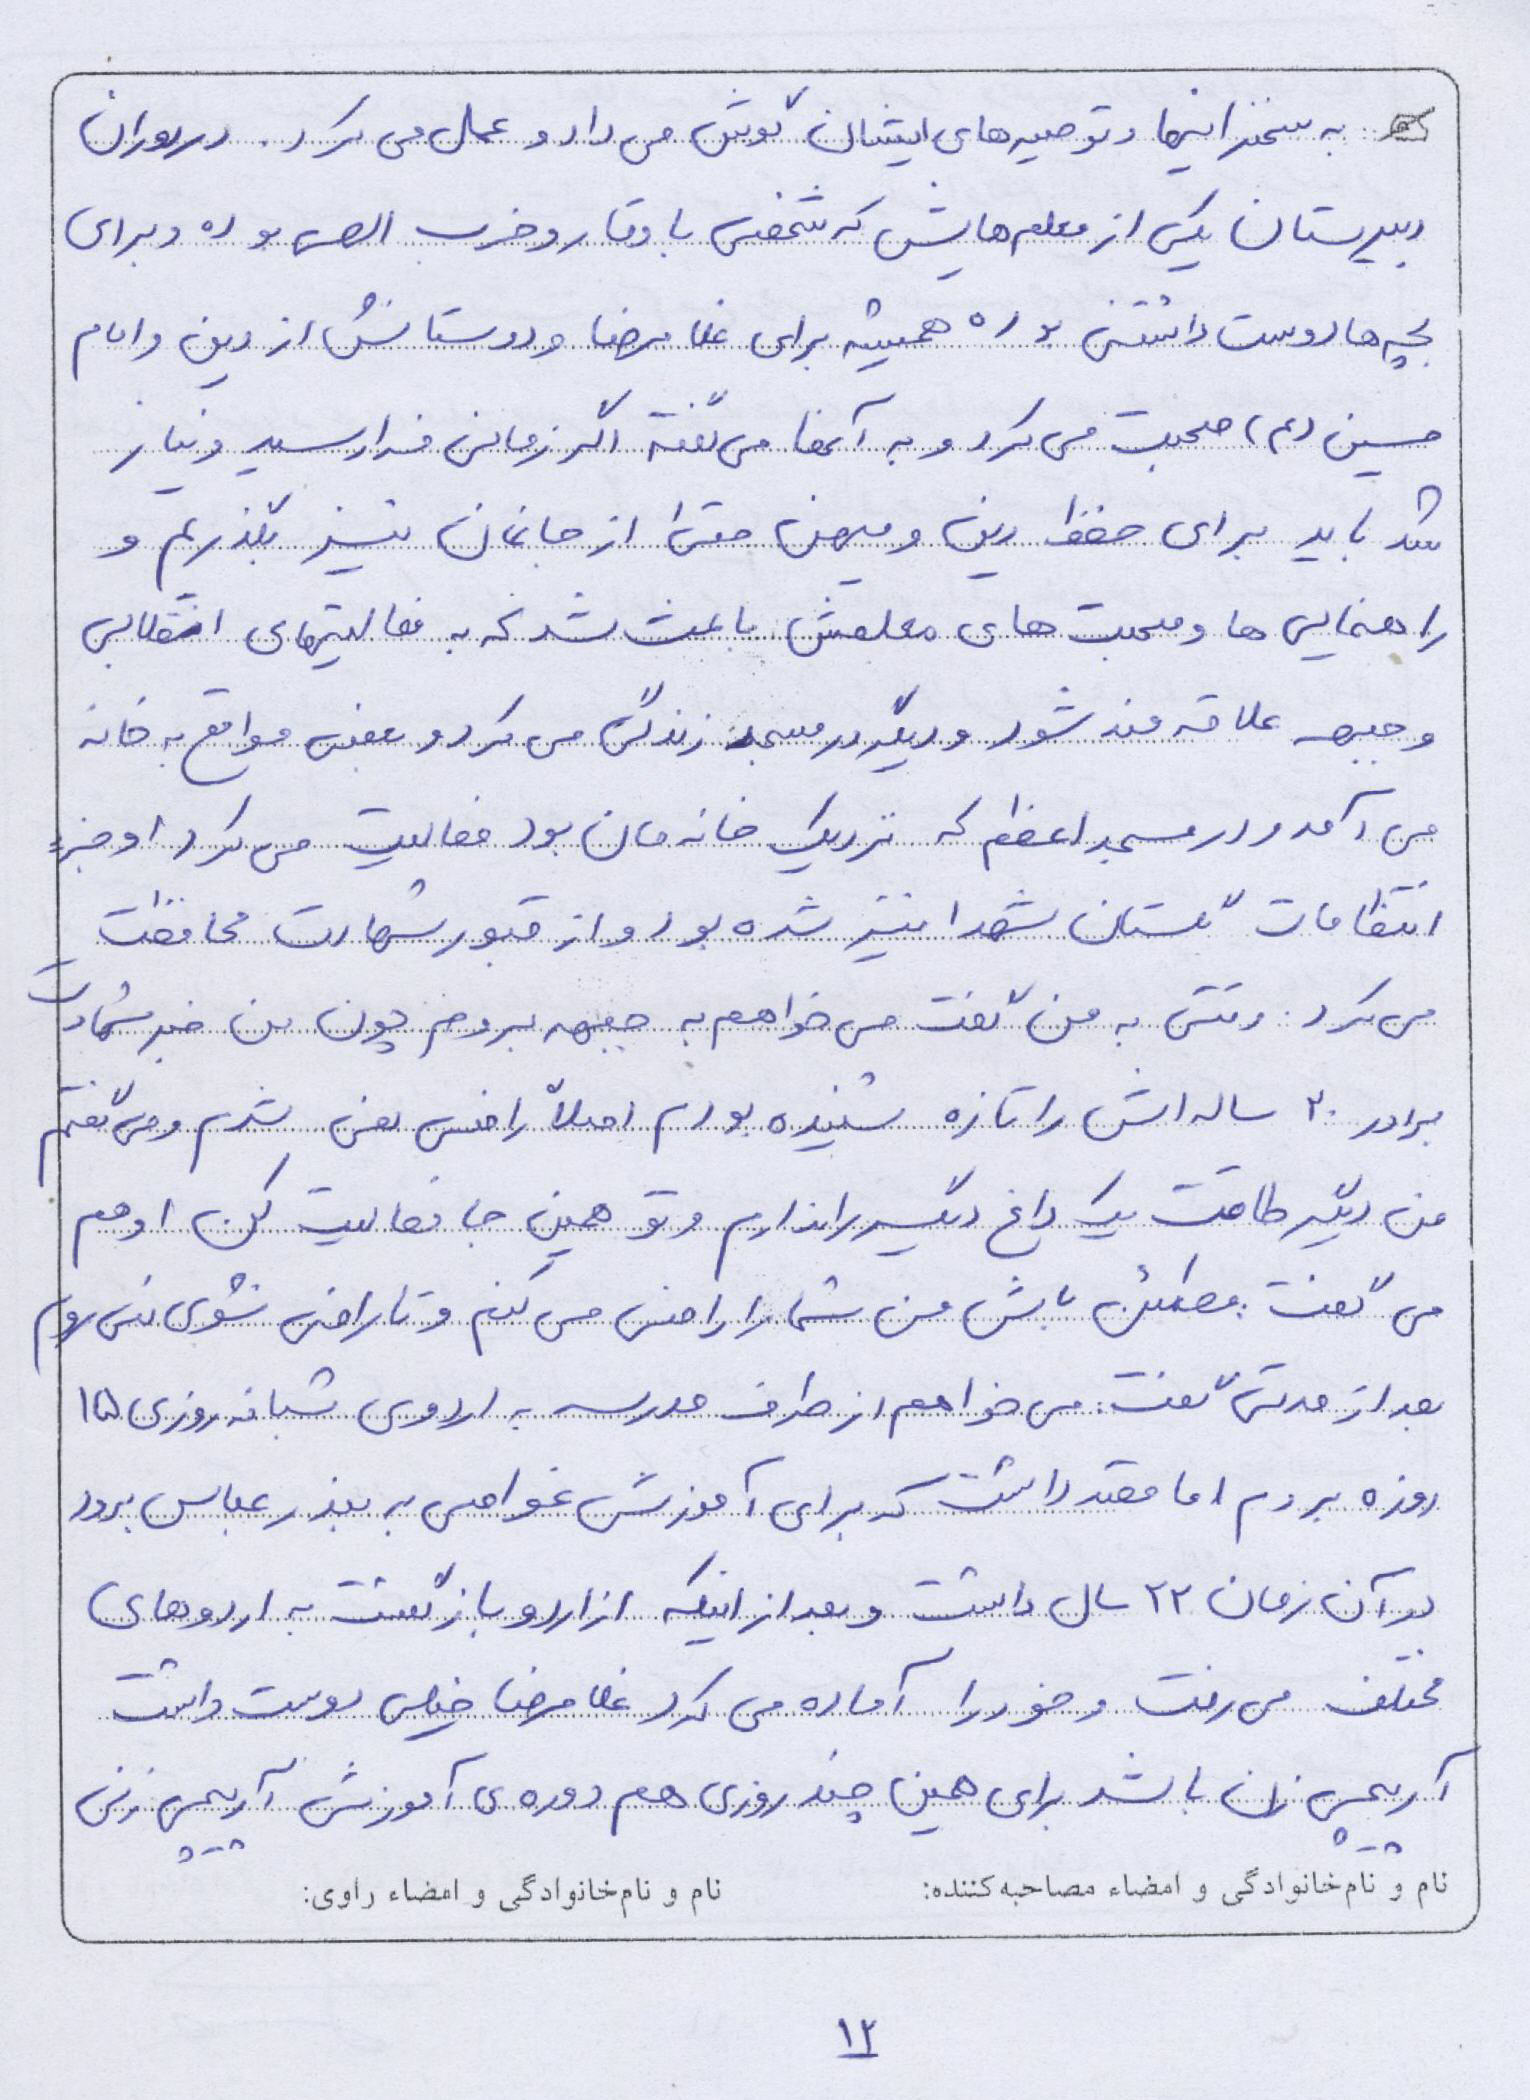 به سخنرانیها و توصیه‌های ایشان گوش می داد و عمل می کرد. در دوران
دبیرستان یکی از معلم‌هایش که شخصی با وقار و حزب الهی بوده و برای
بچه‌ها دوست داشتنی بوده همیشه برای غلامرضا و دوستانش از دین و امام
حسین (ع) صحبت می کرد و به آنها می گفته اگر زمانی فرا رسید و نیاز
شد باید برای حفظ دین و میهن حتی از جانمان نیز بگذریم و
راهنمایی ها و صحبت های معلمش باعث شد که به فعالیتهای انقلابی
و جبهه علاقه مند شود و دیگر در مسجد زندگی می کرد و بعضی مواقع به خانه
می آمد و در مسجد اعظم که نزدیک خانه مان بود فعالیت می کرد او جزء
انتظامات گلستان شهدا نیز شده بود و از قبور شهادت محافظت
می کرد. وقتی به من گفت می خواهم به جبهه بروم چون من خبر شهادت
برادر ۲۰ ساله اش را تازه شنیده بودم اصلاً راضی نمی شدم و می گفتم
من دیگر طاقت یک داغ دیگر را ندارم و تو همین جا فعالیت کن او هم
می گفت: مطمئن باش من شما را راضی می کنم و تا راضی نشوی نمی روم
بعد از مدتی گفت: می خواهم از طرف مدرسه به اردوی شبانه روزی ۱۵
روزه بروم اما قصد داشت که برای آموزش غواصی به بندر عباس برود
در آن زمان ۲۲ سال داشت و بعد از اینکه از اردو بازگشت به اردوهای
مختلف می رفت و خود را آماده می کرد غلامرضا خیلی دوست داشت
آرپیجی زن باشد برای همین چند روزی هم دوره ی آموزش آرپیجی زنی
نام و نام‌خانوادگی و امضاء مصاحبه‌کننده: نام و نام‌خانوادگی و امضاء راوی:
۱۲